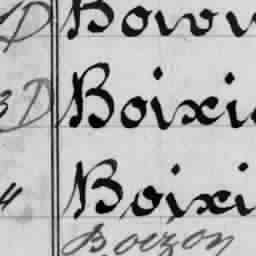 D Bow
3 D Boixi
4 Boixi
Boizon